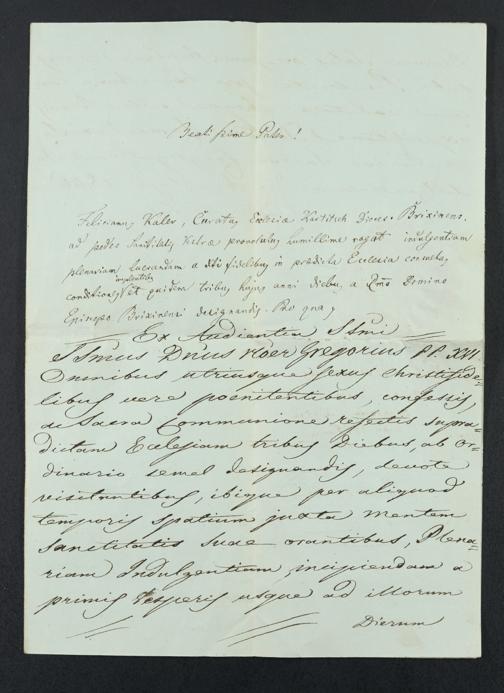 Beatissime Pater!
Felicianus Kaler, Curatus Ecclesia Kartitsch Dioces. Brixinens.
ad pedes Sanctitatis Vestra provolutus humillime rogat indulgentiam
plenariam lucrandam a dtis fidelibus in predicta Ecclesia consuetas
implentibus
conditiones et quidem tribus hujus anni diebus, a Rmo Domino
Episcopo Brixinensi designandis. Pro qua,
Ex Audientia SSmi
SSmus Dnus Noster Gregorius P.P. XVI.
Omnibus utriusque sexus Christifide=
libus vere poenitentibus, confessis,
ac Sacra Communione refectis supra=
dictam Ecclesiam tribus Diebus, ab or=
dinario semel designandis, devote
visitantibus, ibique per aliquod
temporis spatium juxta mentem
sanctitatis suae orantibus, Plena=
riam Indulgentiam, incipiendam a
primis Vesperis usque ad illorum
Dierum